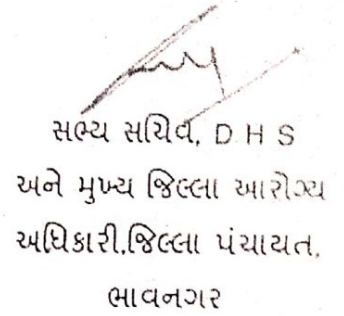 સભ્ય સચિવ, D H S
અને મુખ્ય જિલ્લા આરોગ્ય
અધિકારી,જિલ્લા પંચાયત,
ભાવનગર